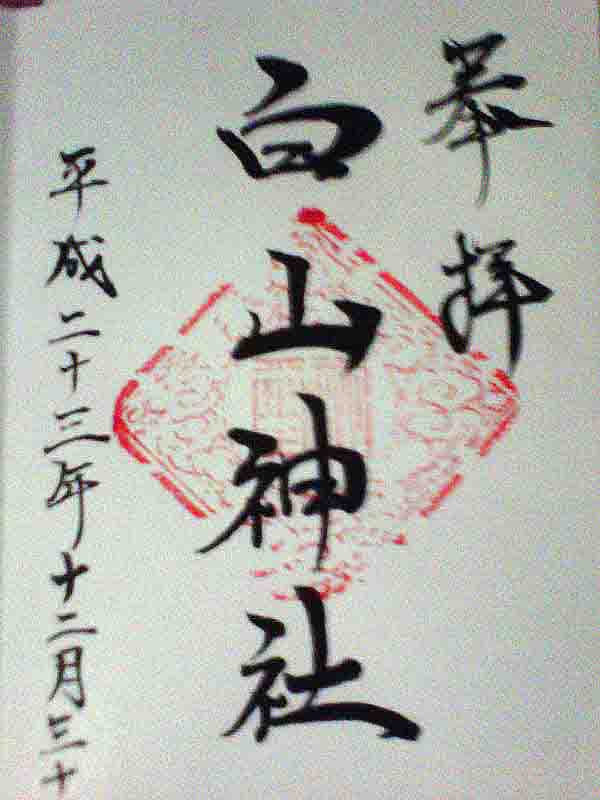 奉拝
白山神社
平成二十三年十二月三十